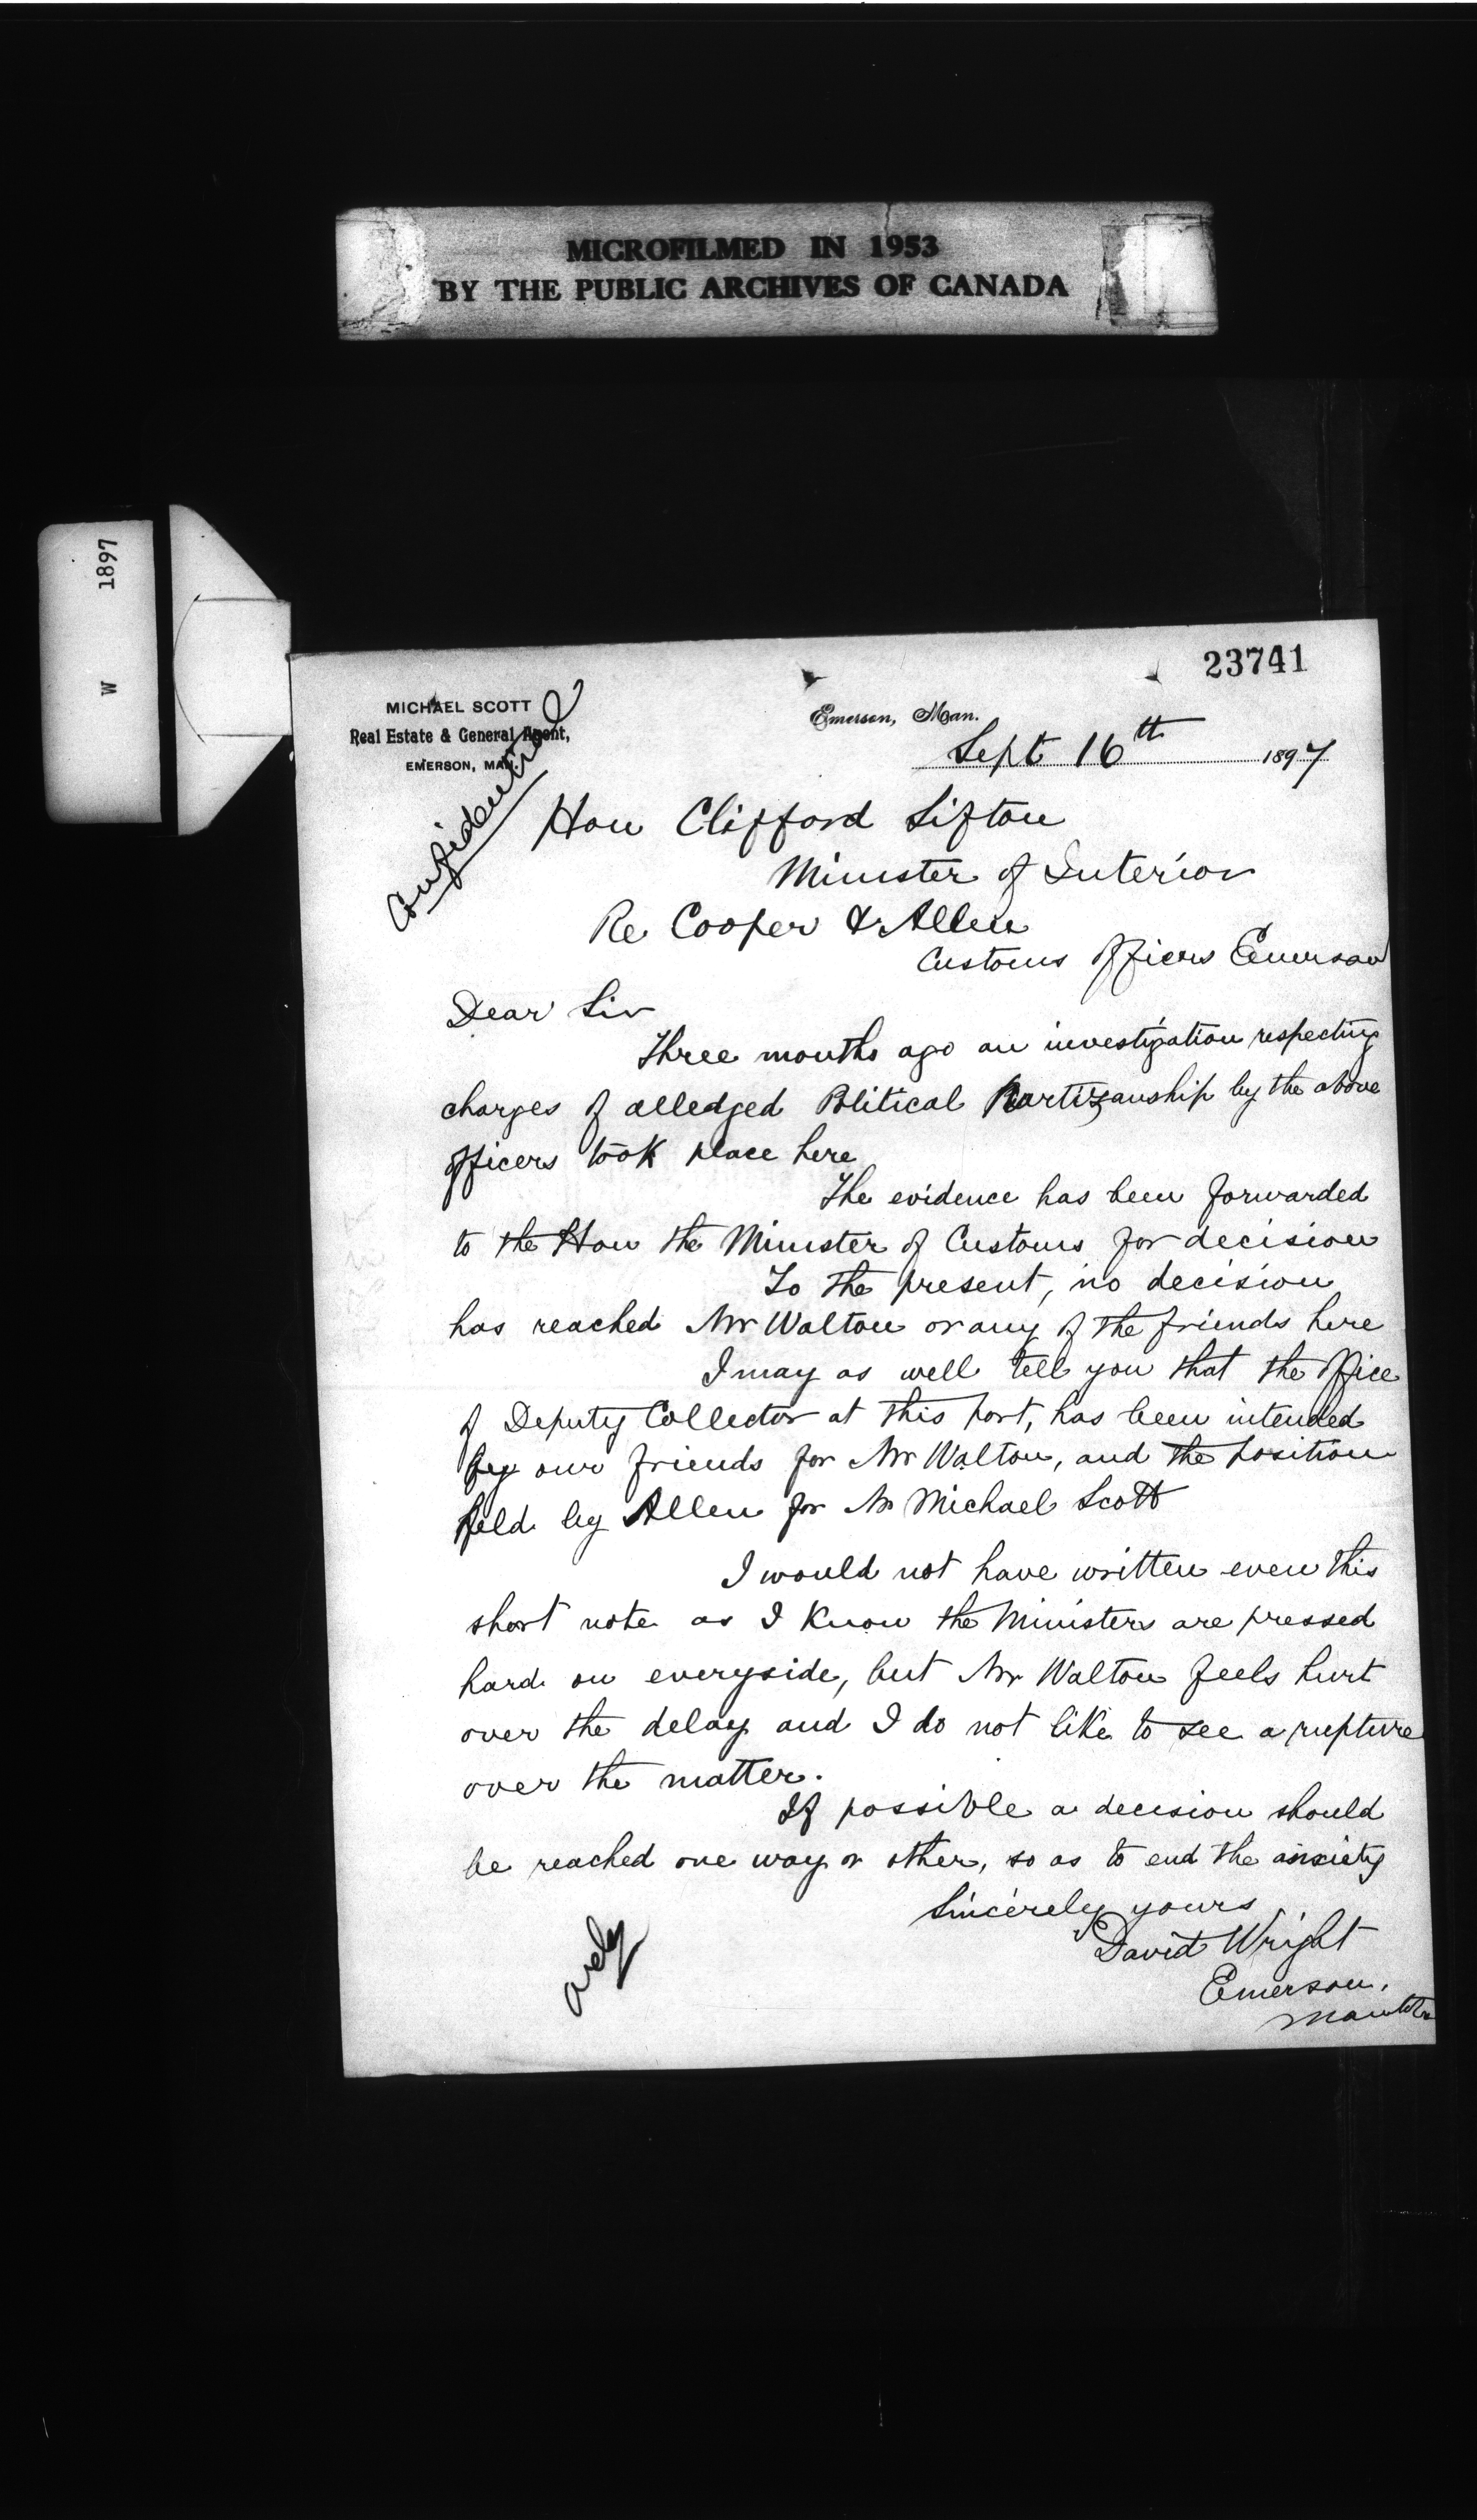 MICROFILMED IN 1953
BY THE PUBLIC ARCHIVES OF CANADA
1897
W
23741
MICHAEL SCOTT
Real Estate & General Agent,
EMERSON, MAN.
Confidential
Emerson, Man.
Sept 16th 1897
Hon Clifford Sifton
Minister of Interior
Re Cooper & Allen
Customs Officers Emerson
Dear Sir
Three months ago an investigation respecting
charges of alledged Political Partizanship by the above
officers took place here
The evidence has been forwarded
to the Hon the Minister of Customs for decision
To the present, no decision
has reached Mr Walton or any of the friends here
I may as well tell you that the office
of Deputy Collector at this port, has been intended
by our friends for Mr Walton, and the position
held by Allen for Mr Michael Scott
I would not have written even this
short note as I know the Ministers are pressed
hard on everyside, but Mr Walton feels hurt
over the delay and I do not like to see a rupture
over the matter.
If possible a decision should
be reached one way or other, so as to end the anxiety
Sincerely yours
David Wright
Emerson,
Manitoba